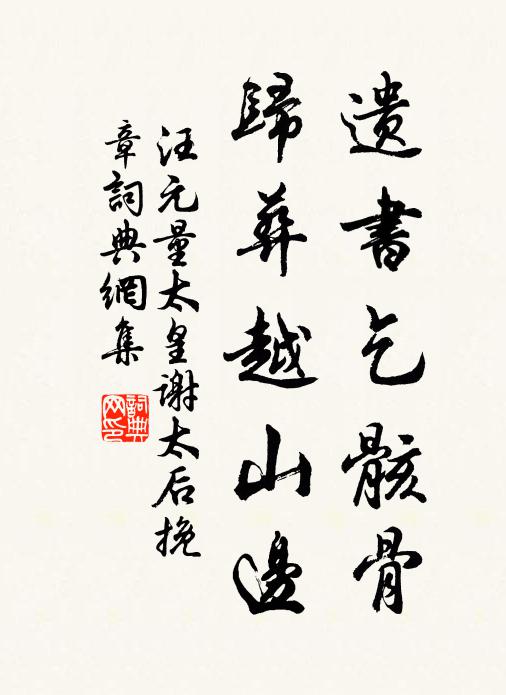 遺書乞骸骨
歸葬越山邊
汪元量太皇謝太后挽
章詞典網集
詞典
网印